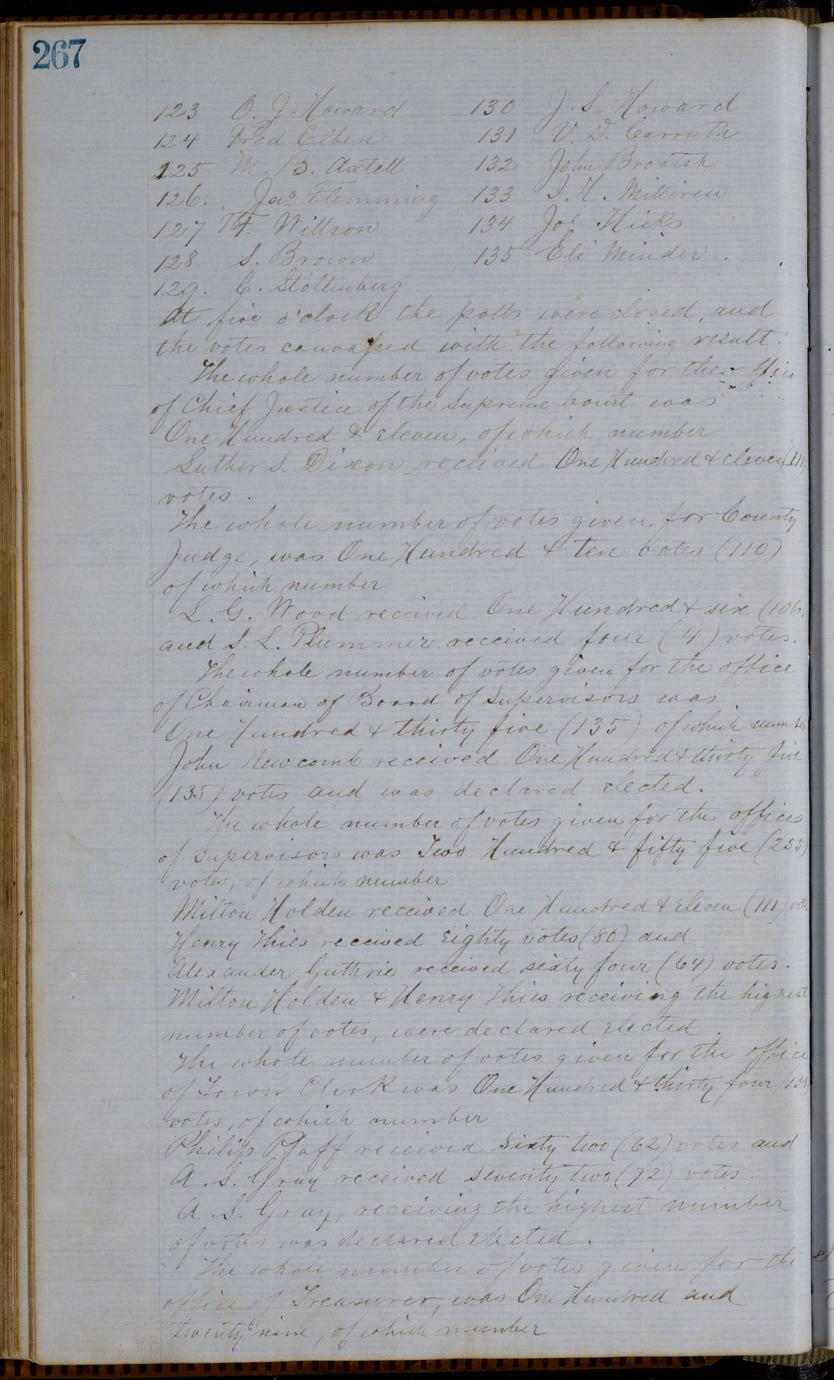 267
123 O. J. Howard 130 J. S. Howard
124 Fred Elben 131 V. D. Carruth
125 M. B. Axtell 132 John Broatsh
126. Jas Flemming 133 I. H. Milliren
127 T. F. Willson 134 Joe Hicks
128 S. Brown 135 Eli Minder.
129. C. Stoltenberg
At five o'clock the polls were closed, and
the votes canvassed with the following result.
The whole number of votes given for the office
of Chief Justice of the Supreme Court was
One Hundred & Eleven, of which number
Luther S. Dixon received One Hundred & eleven 111
votes.
The whole number of votes given for County
Judge, was One Hundred & ten votes (110)
of which number
L. G. Wood received One Hundred & six (106
and S. L. Plummer received four (4) votes.
The whole number of votes given for the office
of Chairman of Board of Supervisors was
One Hundred & thirty five (135) of which number
John Newcomb received One Hundred & thirty five
(135) votes and was declared elected.
The whole number of votes given for the offices
of Supervisors was Two Hundred & fifty five (255)
votes, of which number
Milton Holden received One Hundred & Eleven (111) vots
Henry Thies received Eighty votes (80) and
Alexander Guthrie received sixty four (64) votes.
Milton Holden & Henry Thies receiving the highest
number of votes, were declared elected.
The whole number of votes given for the office
of Town Clerk was One Hundred & thirty four (134
votes, of which number
Philip Pfaff received Sixty two (62) votes and
A. S. Gray received seventy two (72) votes.
A. S. Gray, receiving the highest number
of votes was declared elected.
The whole number of votes given for the
office of Treasurer, was One Hundred and
twenty nine, of which number